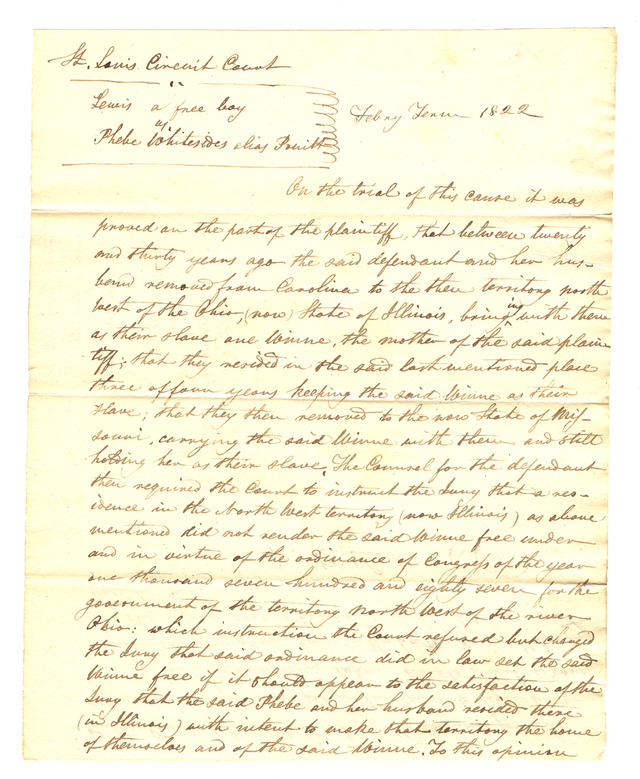 St. Louis Circuit Court
Lewis a free boy
vs
Phebe Whitesides alias Pruitt
Febry Term 1822
On the trial of this cause it was
proved on the part of the plaintiff, that between twenty
and thirty years ago the said defendant and her hus-
band removed from Carolina to the then territory north
west of the Ohio, (now) State of Illinois, bringing with them
as their slave one Winne, the mother of the said plain
tiff; that they resided in the said last mentioned place
three or four years keeping the said Winne as their
slave; that they then removed to the now State of Mis-
souri, carrying the said Winne with them and still
holding her as their slave. The Counsel for the defendant
then required the Court to instruct the Jury that a res-
idence in the North West territory (now Illinois) as above
mentioned did not render the said Winne free under
and in virtue of the ordinance of Congress of the year
one thousand seven hundred and eighty seven for the
government of the territory North West of the river
Ohio: which instruction the Court refused but charged
the Jury that said ordinance did in law set the said
Winne free if it should appear to the satisfaction of the
Jury that the said Phebe and her husband resided there
(in Illinois) with intent to make that territory the home
of themselves and of the said Winne. To this opinion